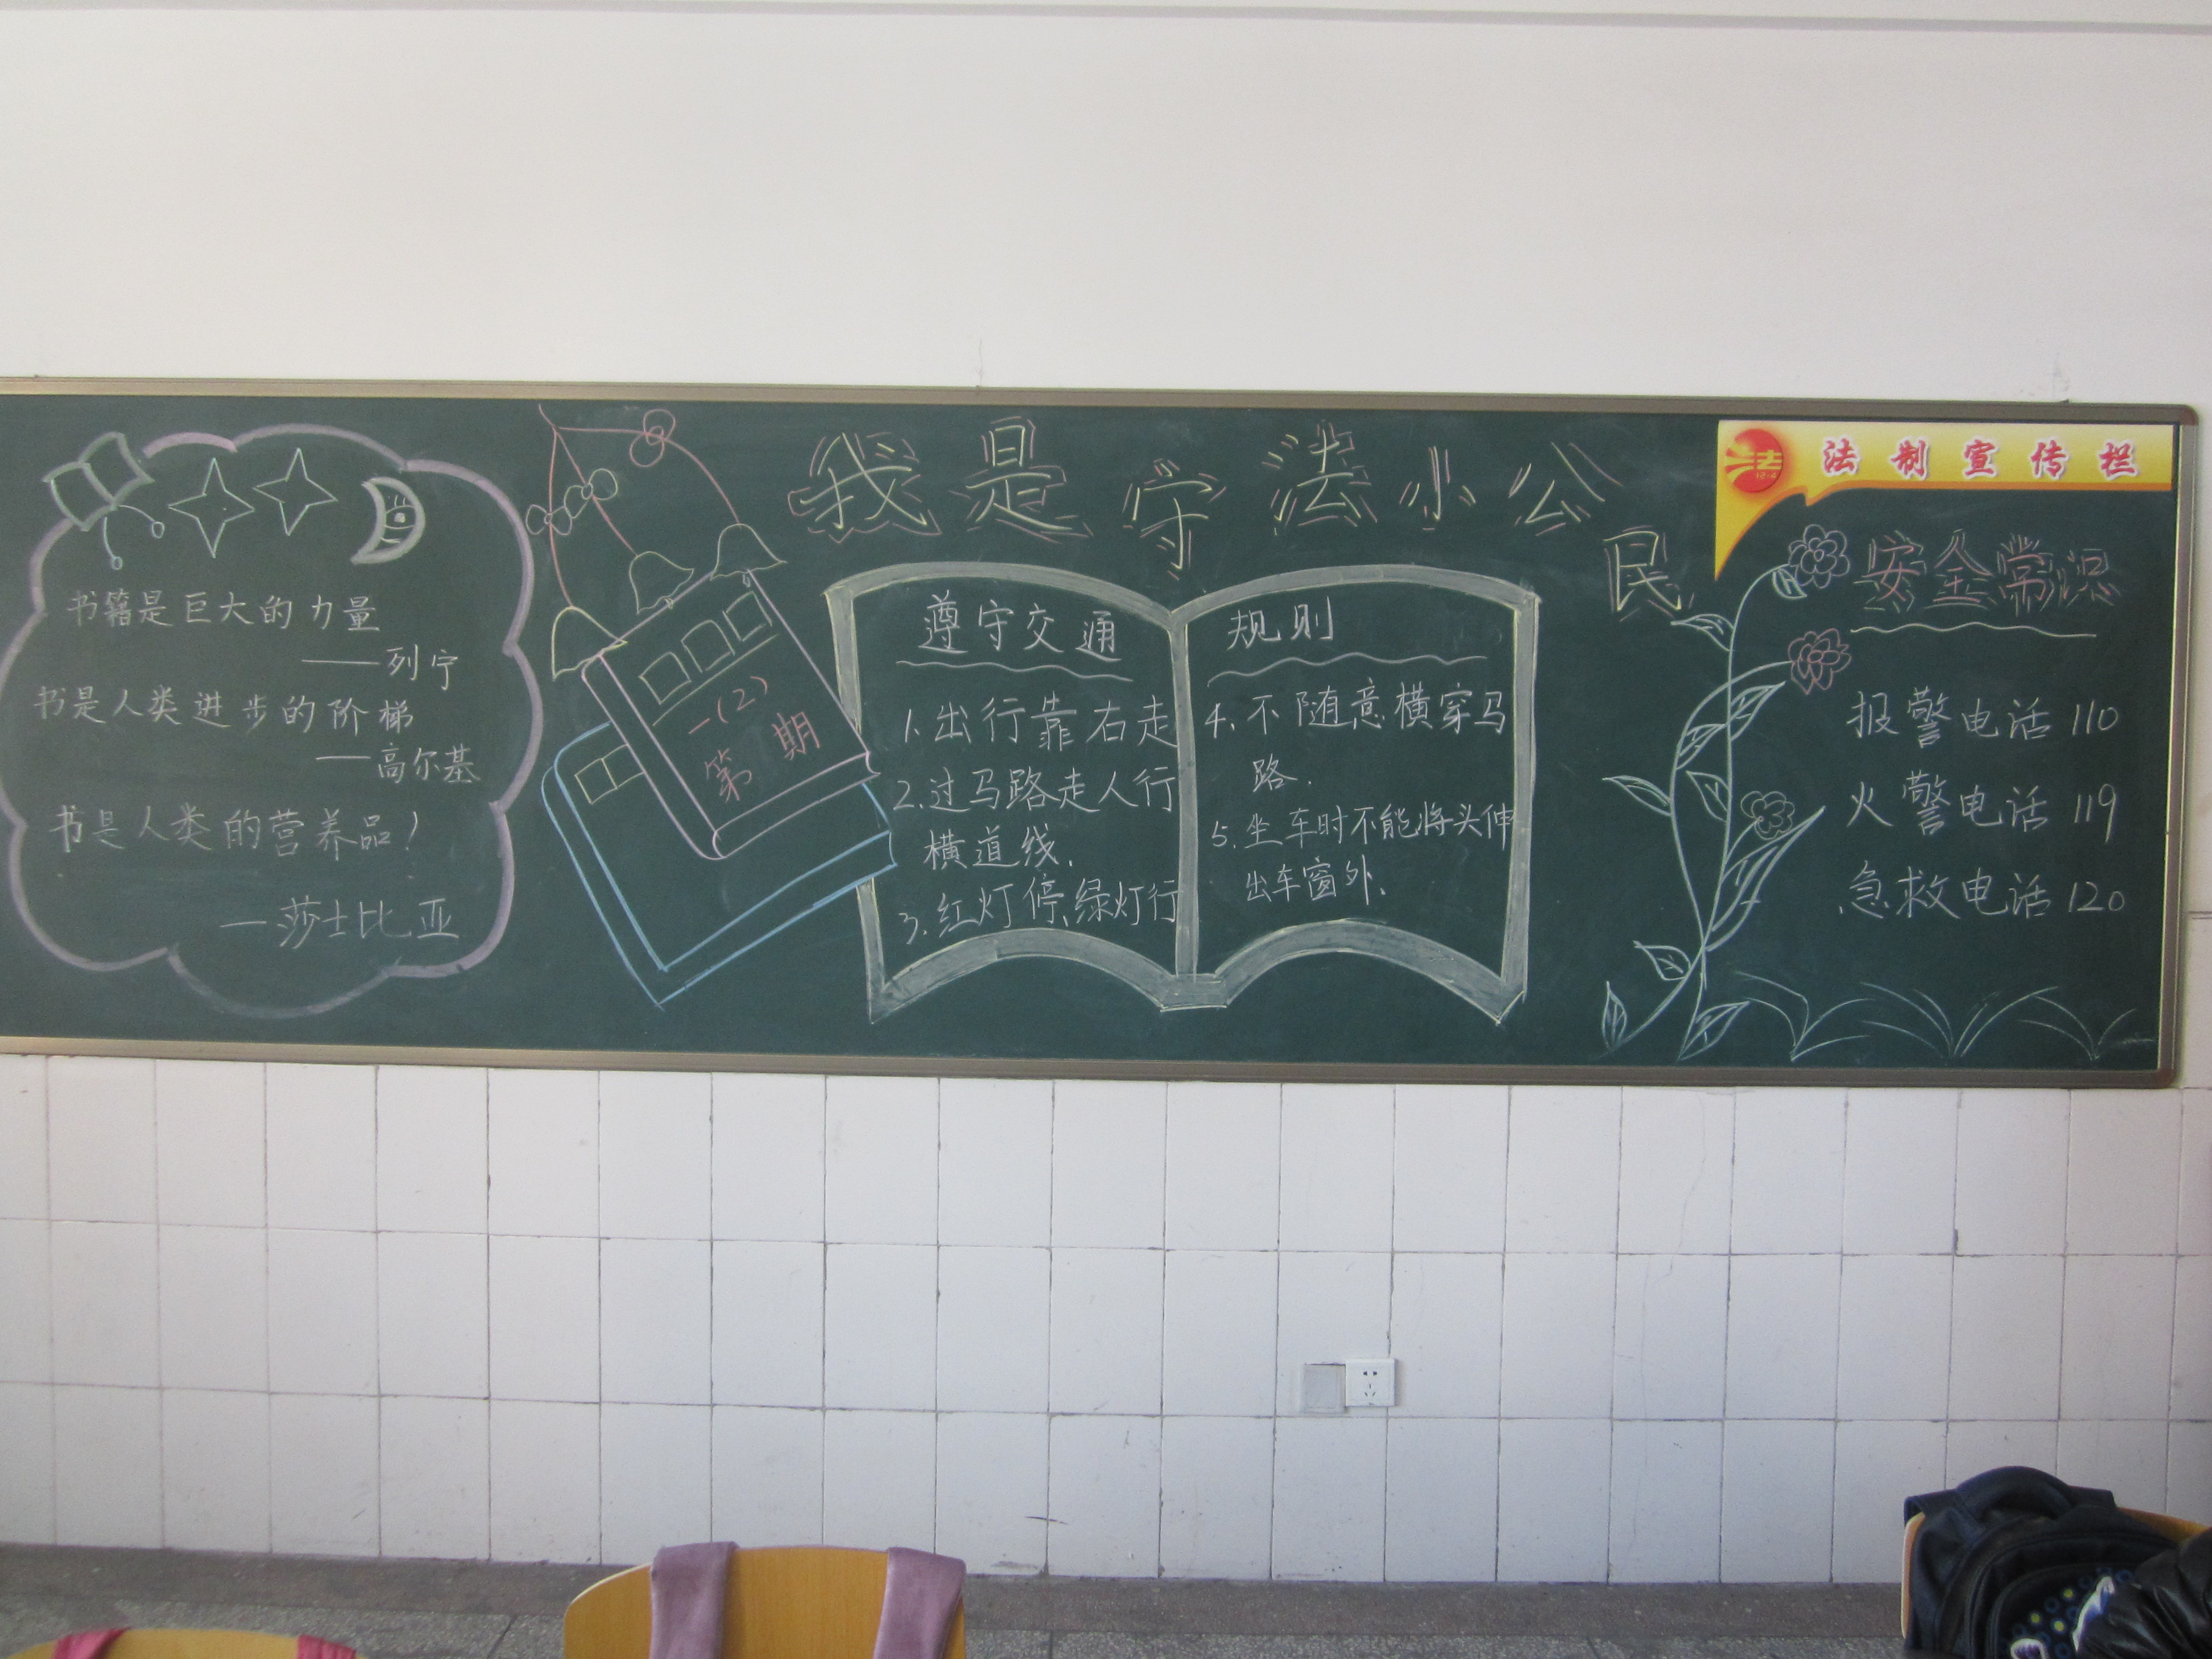 我是守法小公民
书籍是巨大的力量
——列宁
书是人类进步的阶梯
——高尔基
书是人类的营养品！
—莎士比亚
一(2)
第 期
遵守交通
1.出行靠右走
2.过马路走人行
横道线.
3.红灯停,绿灯行
规则
4.不随意横穿马
路.
5.坐车时不能将头伸
出车窗外.
法
12·4
法制宣传栏
安全常识
报警电话 110
火警电话 119
急救电话 120